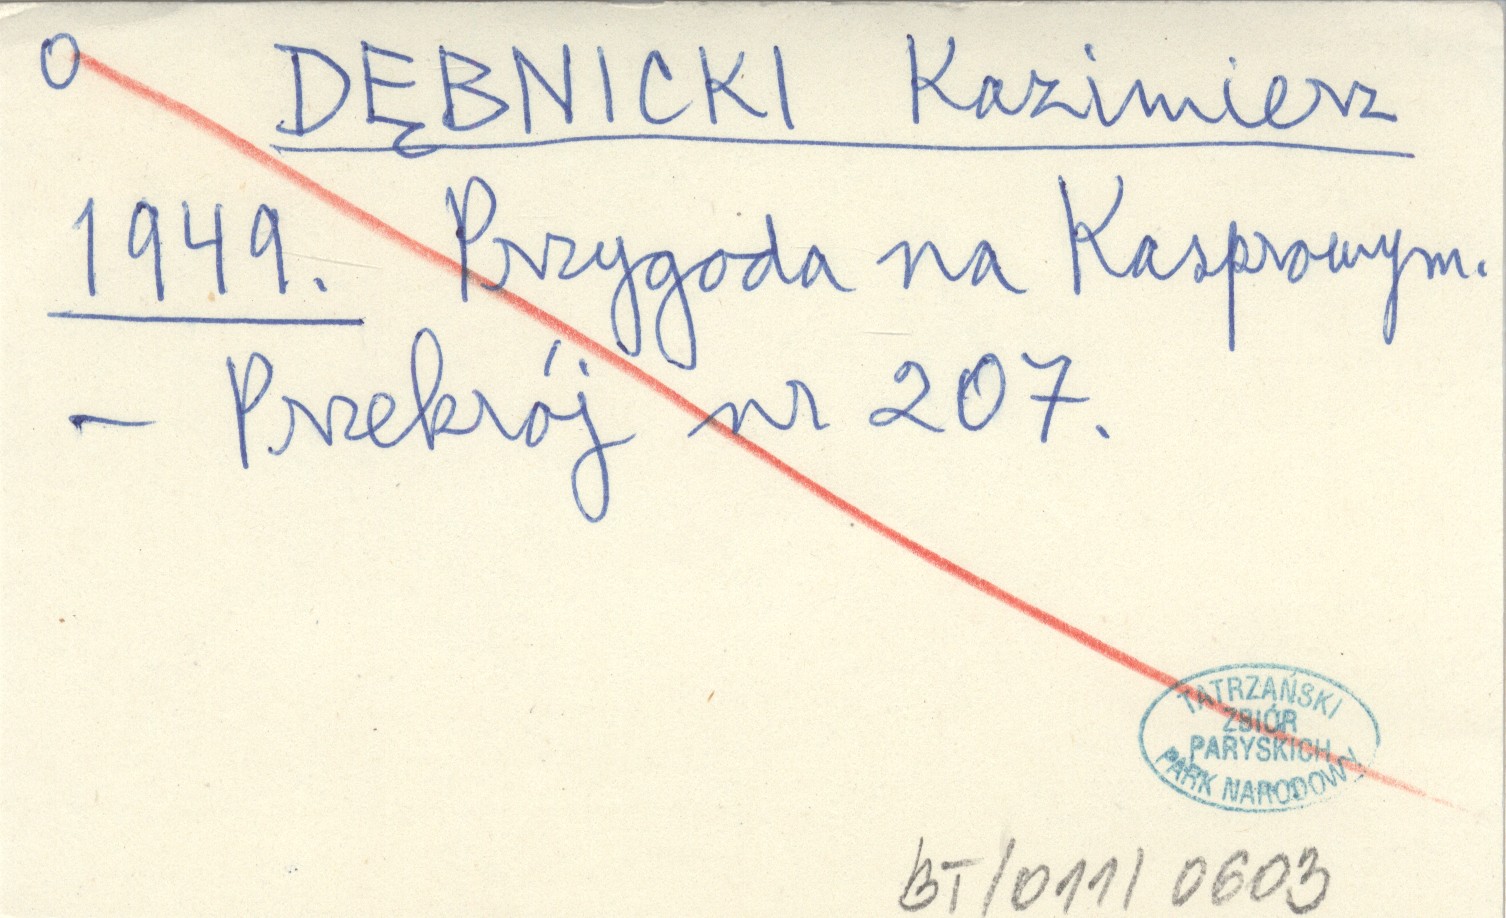 O DĘBNICKI Kazimierz
1949. Przygoda na Kasprowym.
- Przekrój nr 207.
TATRZAŃSKI
ZBIÓR
PARYSKICH
PARK NARODOWY
BT/011/0603